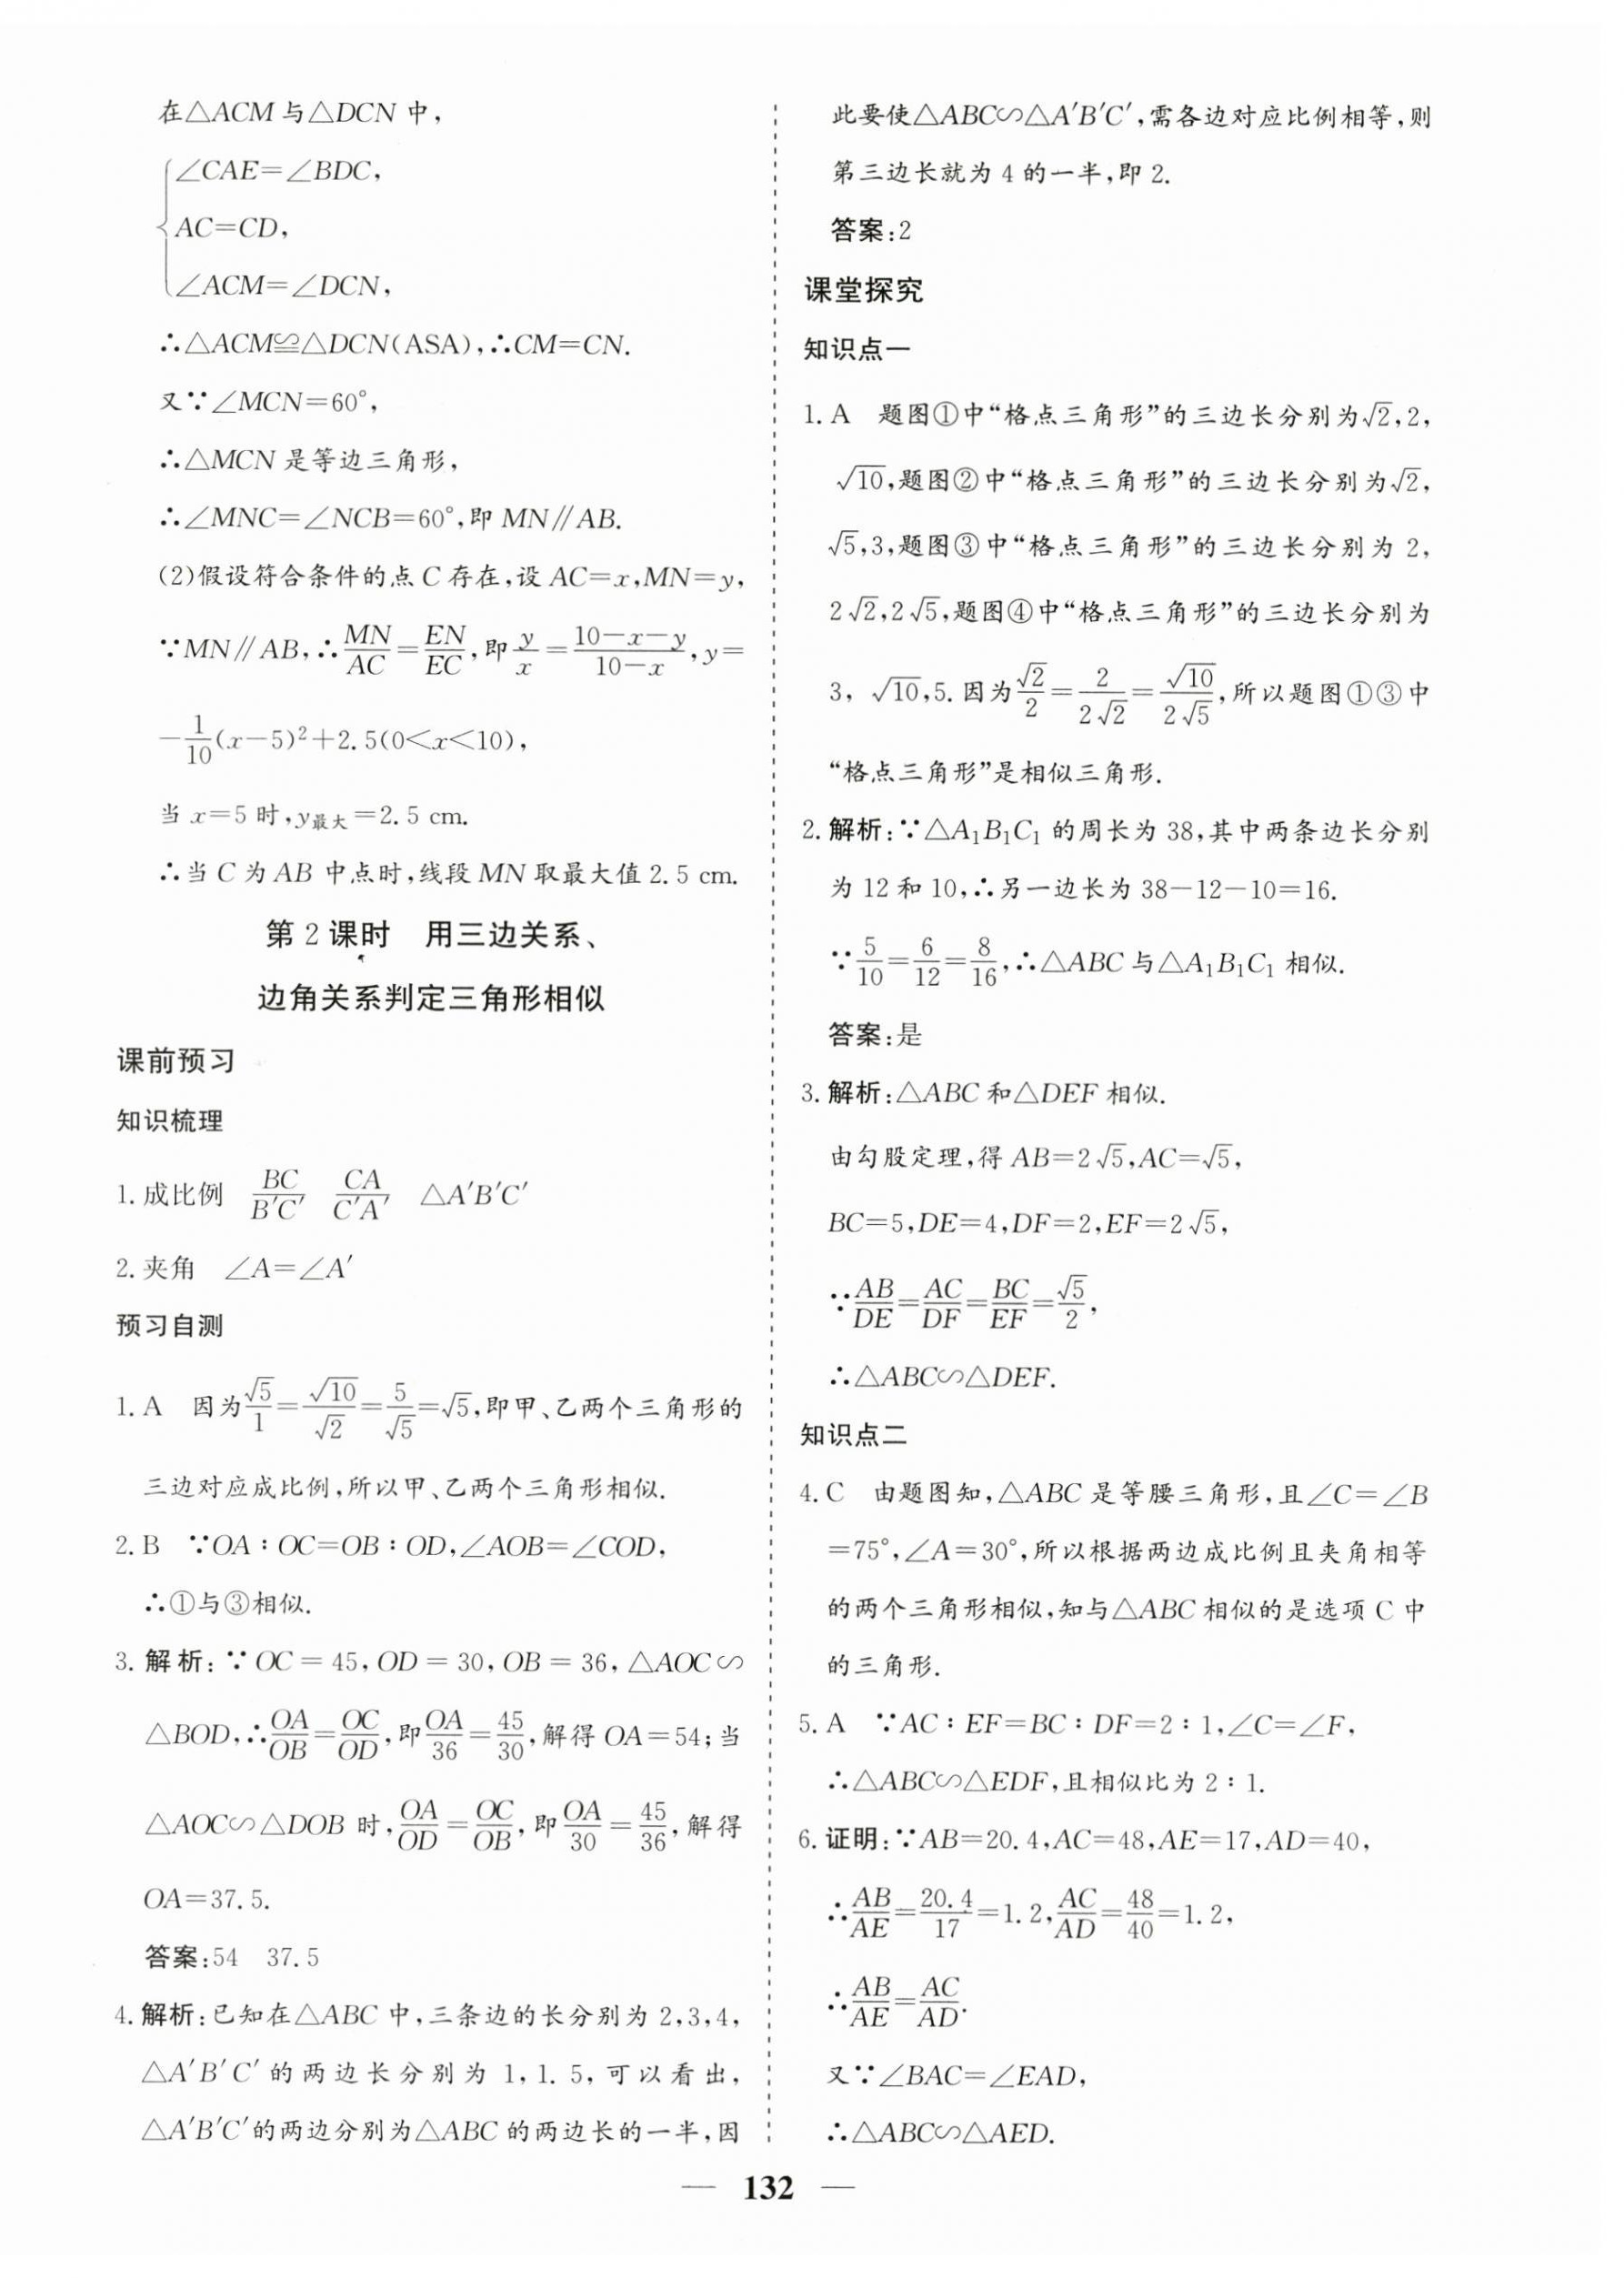 在△ACM与△DCN中，
∠CAE=∠BDC，
AC=CD，
∠ACM=∠DCN，
∴△ACM≌△DCN(ASA)，∴CM=CN.
又∵∠MCN=60°，
∴△MCN是等边三角形，
∴∠MNC=∠NCB=60°，即MN∥AB.
(2)假设符合条件的点C存在，设AC=x，MN=y，
∵MN∥AB，∴MN/AC=EN/EC，即y/x=(10-x-y)/(10-x)，y=
-1/10(x-5)²+2.5(0<x<10)，
当x=5时，y最大=2.5 cm.
∴当C为AB中点时，线段MN取最大值2.5 cm.
第2课时 用三边关系、
边角关系判定三角形相似
课前预习
知识梳理
1.成比例 BC/B′C′ CA/C′A′ △A′B′C′
2.夹角 ∠A=∠A′
预习自测
1.A 因为√5/1=√10/√2=5/√5=√5，即甲、乙两个三角形的
三边对应成比例，所以甲、乙两个三角形相似.
2.B ∵OA∶OC=OB∶OD，∠AOB=∠COD，
∴①与③相似.
3.解析：∵OC=45，OD=30，OB=36，△AOC∽
△BOD，∴OA/OB=OC/OD，即OA/36=45/30，解得OA=54；当
△AOC∽△DOB时，OA/OD=OC/OB，即OA/30=45/36，解得
OA=37.5.
答案：54 37.5
4.解析：已知在△ABC中，三条边的长分别为2，3，4，
△A′B′C′的两边长分别为1，1.5，可以看出，
△A′B′C′的两边分别为△ABC的两边长的一半，因
此要使△ABC∽△A′B′C′，需各边对应比例相等，则
第三边长就为4的一半，即2.
答案：2
课堂探究
知识点一
1.A 题图①中“格点三角形”的三边长分别为√2，2，
√10，题图②中“格点三角形”的三边长分别为√2，
√5，3，题图③中“格点三角形”的三边长分别为2，
2√2，2√5，题图④中“格点三角形”的三边长分别为
3，√10，5.因为√2/2=2/2√2=√10/2√5，所以题图①③中
“格点三角形”是相似三角形.
2.解析：∵△A₁B₁C₁的周长为38，其中两条边长分别
为12和10，∴另一边长为38-12-10=16.
∵5/10=6/12=8/16，∴△ABC与△A₁B₁C₁相似.
答案：是
3.解析：△ABC和△DEF相似.
由勾股定理，得AB=2√5，AC=√5，
BC=5，DE=4，DF=2，EF=2√5，
∵AB/DE=AC/DF=BC/EF=√5/2，
∴△ABC∽△DEF.
知识点二
4.C 由题图知，△ABC是等腰三角形，且∠C=∠B
=75°，∠A=30°，所以根据两边成比例且夹角相等
的两个三角形相似，知与△ABC相似的是选项C中
的三角形.
5.A ∵AC∶EF=BC∶DF=2∶1，∠C=∠F，
∴△ABC∽△EDF，且相似比为2∶1.
6.证明：∵AB=20.4，AC=48，AE=17，AD=40，
∴AB/AE=20.4/17=1.2，AC/AD=48/40=1.2，
∴AB/AE=AC/AD.
又∵∠BAC=∠EAD，
∴△ABC∽△AED.
— 132 —